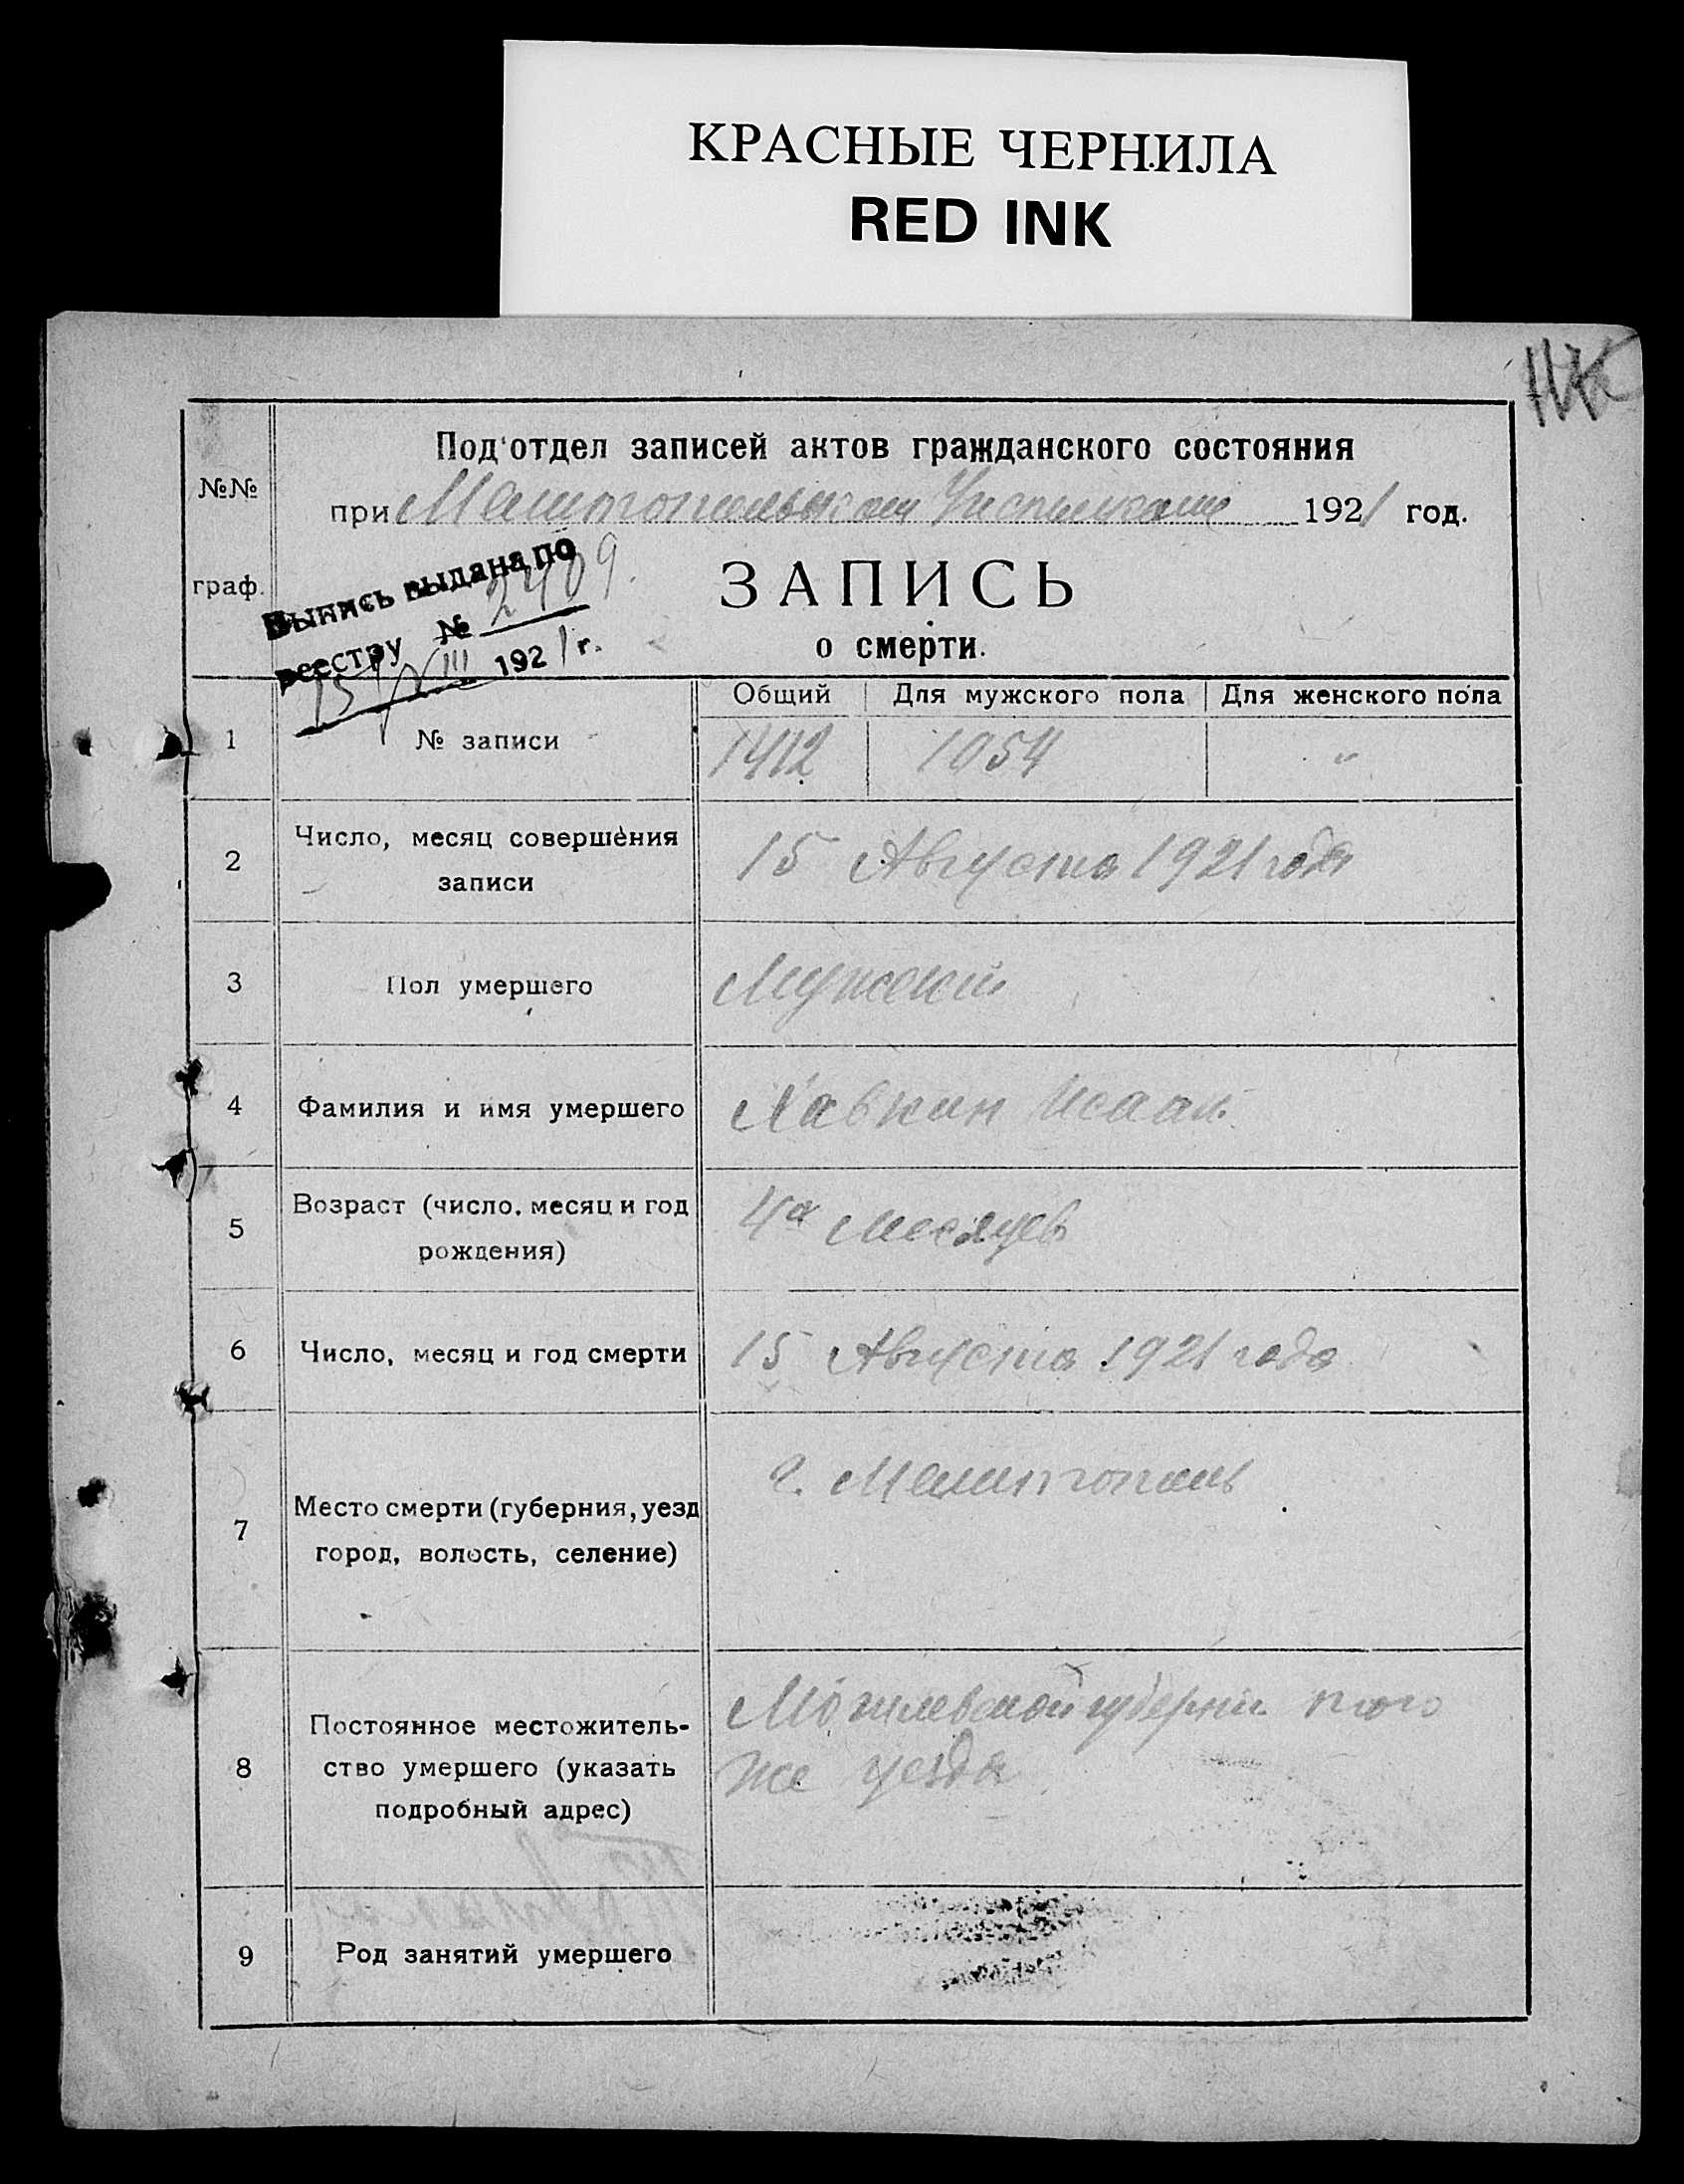 КРАСНЫЕ ЧЕРНИЛА
RED INK
Под'отдел записей актов гражданского состояния
при Мелитопольском Уисполкоме 1921 год.
№№
граф.
ЗАПИСЬ
о смерти.
Выпись выдана по
реестру № 2409.
15/VIII 1921 г.
Общий Для мужского пола Для женского пола
1 № записи 1412 1054 "
2 Число, месяц совершения
записи
15 Августа 1921 года
3 Пол умершего Мужской
4 Фамилия и имя умершего Хавкин Исаак
5 Возраст (число, месяц и год
рождения)
4х месяцев
6 Число, месяц и год смерти 15 Августа 1921 года
7 Место смерти (губерния, уезд
город, волость, селение)
г. Мелитополь
8 Постоянное местожитель-
ство умершего (указать
подробный адрес)
Могилевской губернии того
же уезда
9 Род занятий умершего